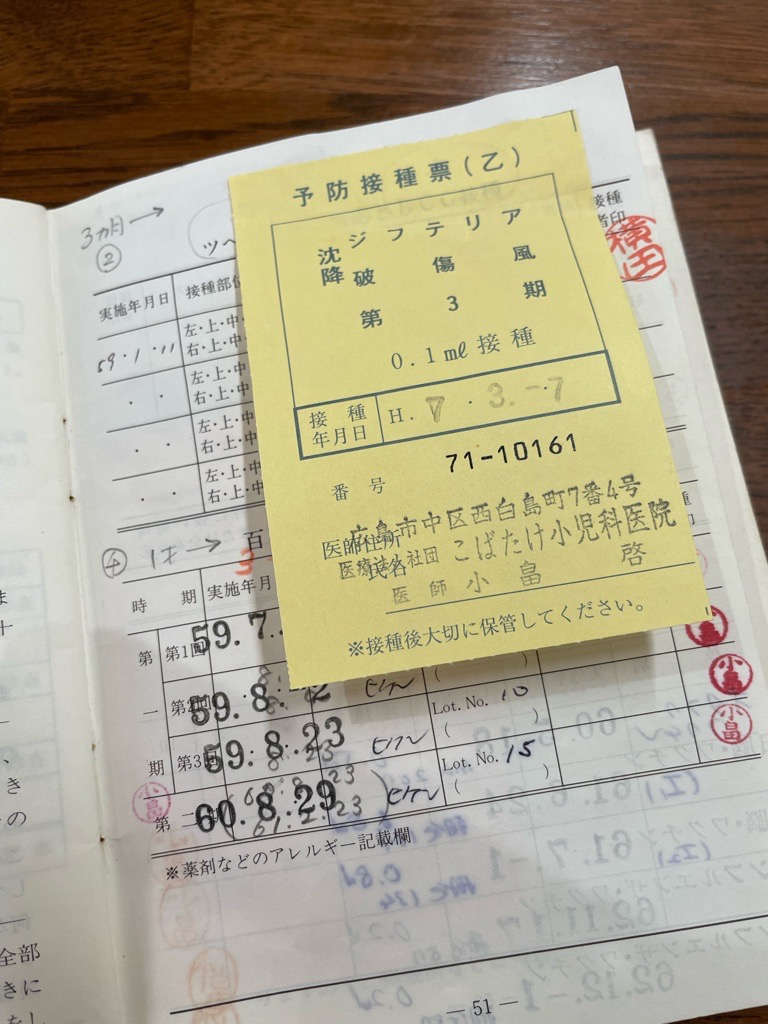 予防接種票(乙)
沈降 ジフテリア
破傷風
第3期
0.1ml 接種
接種年月日 H. 7・3.-7
番号 71-10161
医師住所 広島市中区西白島町7番4号
氏名 医療法人社団 こばたけ小児科医院
医師 小畠 啓
※接種後大切に保管してください。
3カ月→
②
ツベ
接種
者印
横田
実施年月日 接種部位
59・1・11 左・上・中・
右・上・中・
・ ・ 左・上・中・
右・上・中・
・ ・ 左・上・中・
右・上・中・
・ ・ 左・上・中・
右・上・中・
④ 1才→ 百
3
時期 実施年月
第一期 第1回 59.7.
第2回 59.8.12 Lot. No. 10
( )
小畠
第3回 59.8.23 Lot. No. 15
( )
小畠
小畠
第二期 60.8.29
※薬剤などのアレルギー記載欄
— 51 —
ま
十
、
き
の
全部
きに
をし